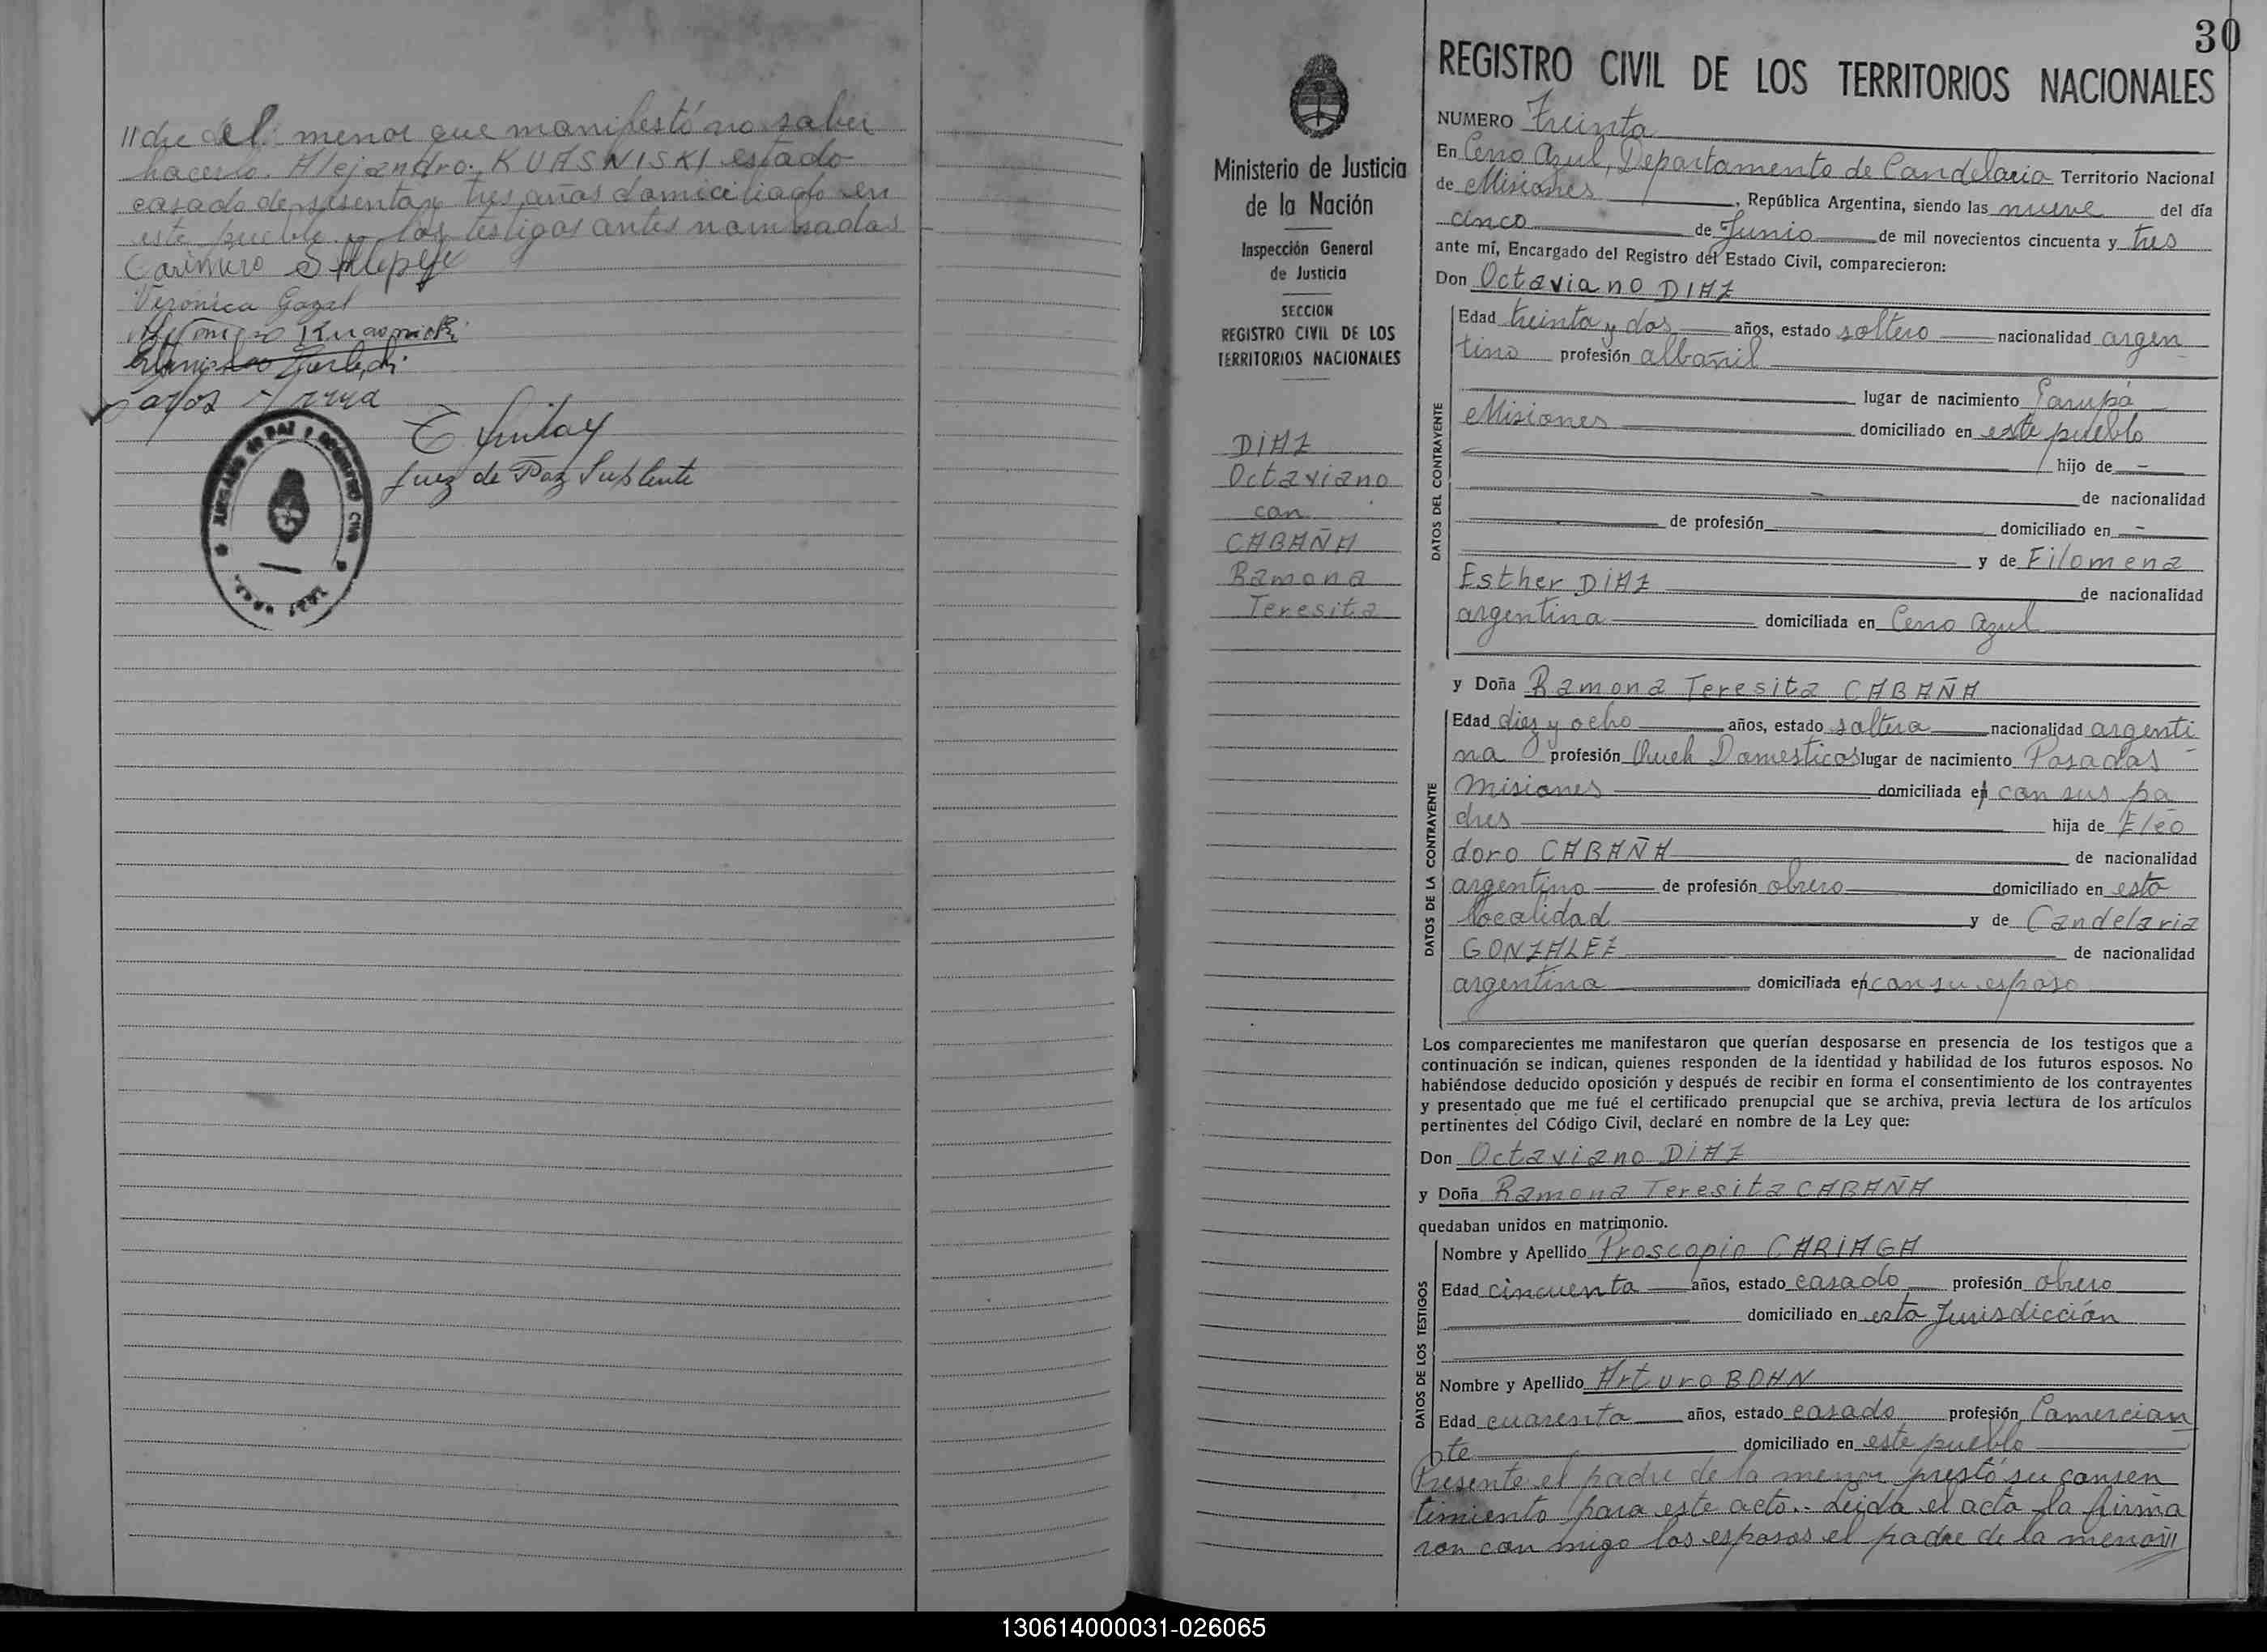 //dre del menor que manifestó no saber
hacerlo. Alejandro KUASNISKI estado
casado de sesenta y tres años domiciliado en
este pueblo y los testigos antes nombrados
Verónica Gazal
Juez de Paz Suplente
JUZGADO de PAZ Y REGISTRO CIVIL
30
REGISTRO CIVIL DE LOS TERRITORIOS NACIONALES
Ministerio de Justicia
de la Nación
Inspección General
de Justicia
SECCION
REGISTRO CIVIL DE LOS
TERRITORIOS NACIONALES
DIAZ
Octaviano
con
CABAÑA
Ramona
Teresita
NUMERO Treinta
En Cerro Azul, Departamento de Candelaria Territorio Nacional
de Misiones, República Argentina, siendo las nueve del día
cinco de Junio de mil novecientos cincuenta y tres
ante mí, Encargado del Registro del Estado Civil, comparecieron:
Don Octaviano DIAZ
DATOS DEL CONTRAYENTE
Edad treinta y dos años, estado soltero nacionalidad argen
tino profesión albañil
lugar de nacimiento Garupá
Misiones domiciliado en este pueblo
hijo de -
de nacionalidad
de profesión domiciliado en -
y de Filomena
Esther DIAZ de nacionalidad
argentina domiciliada en Cerro Azul
y Doña Ramona Teresita CABAÑA
DATOS DE LA CONTRAYENTE
Edad diez y ocho años, estado soltera nacionalidad argenti
na profesión Queh Domesticos lugar de nacimiento Posadas -
Misiones domiciliada en con sus pa
dres hija de Eleo
doro CABAÑA de nacionalidad
argentino de profesión obrero domiciliado en esta
localidad y de Candelaria
GONZALEZ de nacionalidad
argentina domiciliada en con su esposo
Los comparecientes me manifestaron que querían desposarse en presencia de los testigos que a
continuación se indican, quienes responden de la identidad y habilidad de los futuros esposos. No
habiéndose deducido oposición y después de recibir en forma el consentimiento de los contrayentes
y presentado que me fué el certificado prenupcial que se archiva, previa lectura de los artículos
pertinentes del Código Civil, declaré en nombre de la Ley que:
Don Octaviano DIAZ
y Doña Ramona Teresita CABAÑA
quedaban unidos en matrimonio.
DATOS DE LOS TESTIGOS
Nombre y Apellido Proscopio CARIAGA
Edad cincuenta años, estado casado profesión obrero
domiciliado en esta Jurisdicción
Nombre y Apellido Arturo BOHN
Edad cuarenta años, estado casado profesión Comercian
te domiciliado en este pueblo
Presente el padre de la menor prestó su consen
timiento para este acto.- Leída el acta la firma
ron con migo los esposos el padre de la menor//
130614000031-026065